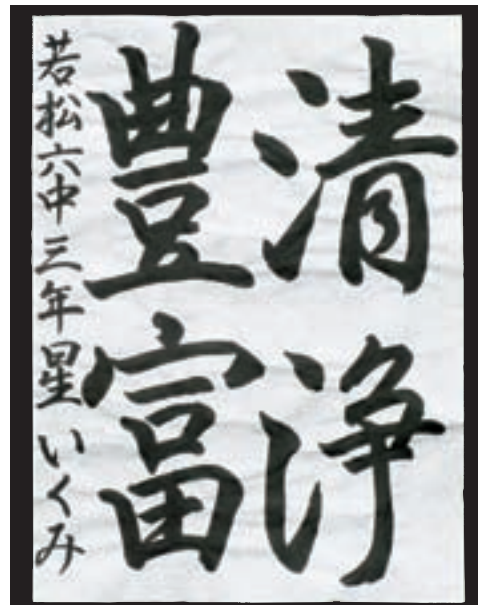 清浄
豊富
若松六中三年星いくみ